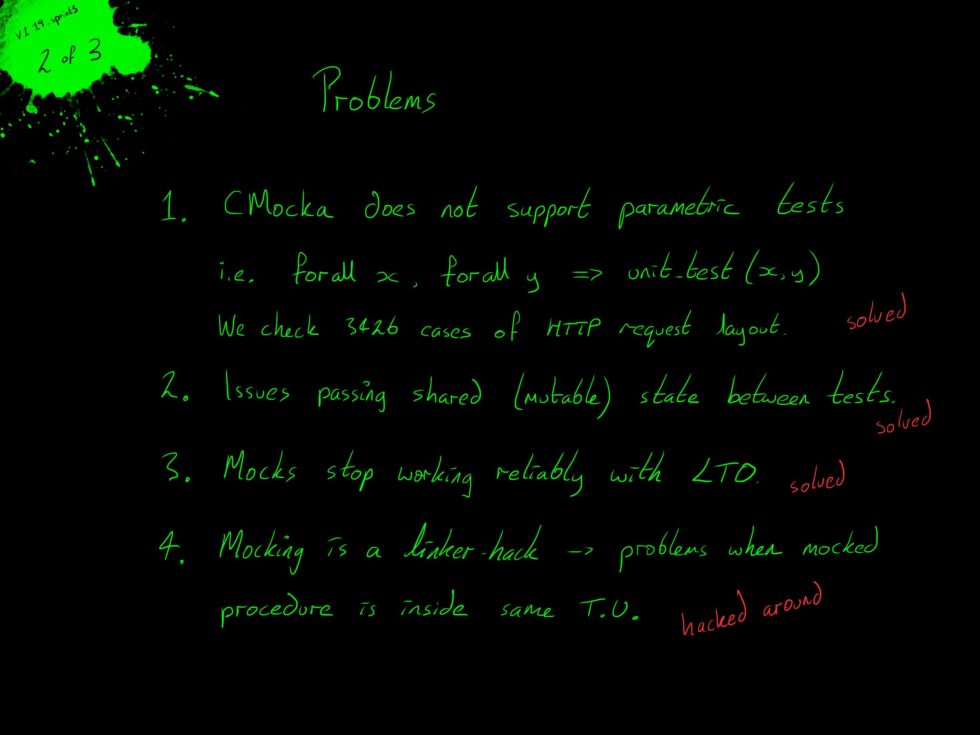 V1.19.sprint3
2 of 3
Problems
1. CMocka does not support parametric tests
i.e. forall x, forall y => unit_test (x,y)
We check 3426 cases of HTTP request layout.
solved
2. Issues passing shared (mutable) state between tests.
solved
3. Mocks stop working reliably with LTO. solved
4. Mocking is a linker-hack -> problems when mocked
procedure is inside same T.U.
hacked around